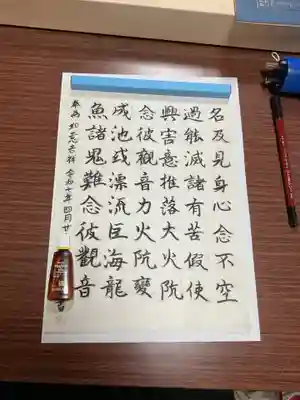 名及見身心念不空
過能滅諸有苦假使
興害意推落大火阬
念彼觀音力火阬變
成池或漂流巨海龍
魚諸鬼難念彼觀音
奉為 如意吉祥 令和七年四月廿
書